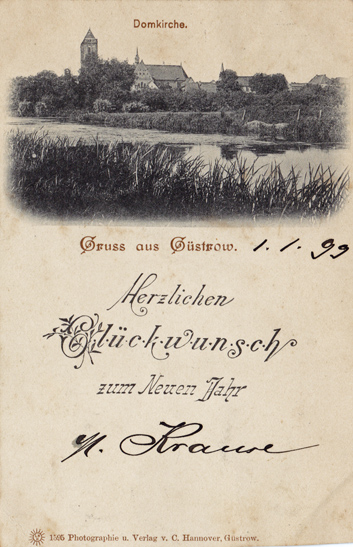 Domkirche.
Gruss aus Güstrow. 1.1.99
Herzlichen
Glückwunsch
zum Neuen Jahr
Krause
1595 Photographie u. Verlag v. C. Hannover, Güstrow.